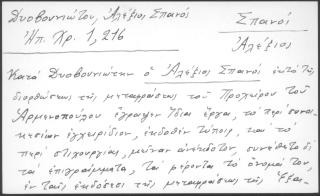 Δυοβουνιώτου, Ἀλέξιος Σπανός
Ἠπ. Χρ. 1, 216
Σπανός
Ἀλέξιος
Κατὰ Δυοβουνιώτην ὁ Ἀλέξιος Σπανός ἐκτὸς τῆς
διορθώσεως τῆς μεταφράσεως τοῦ Προχείρου τοῦ
Ἁρμενοπούλου ἔγραψεν ἴδια ἔργα, τὸ περὶ συνοι-
κεσίων ἐγχειρίδιον, ἐκδοθὲν τύποις, καὶ τὸ
περὶ στιχουργίας, μεῖναν ἀνέκδοτον, συνέθετο δὲ
καὶ ἐπιγράμματα, τὰ φέροντα τὸ ὄνομά του,
ἐν ταῖς ἐκδόσεσι τῆς μεταφράσεως τῆς Ἑξα-